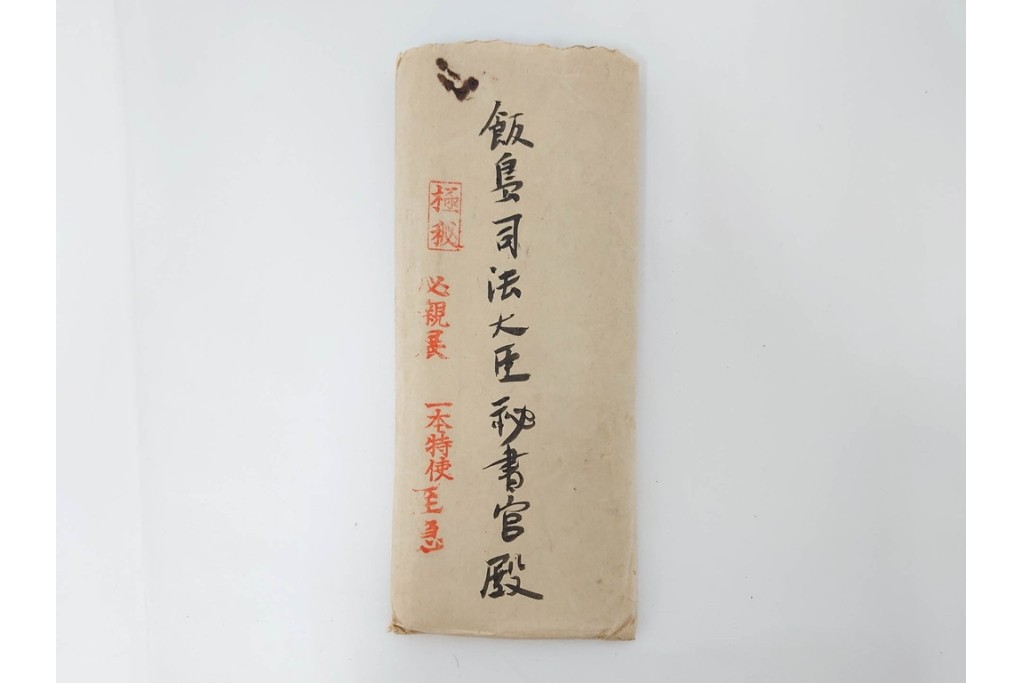 飯島司法大臣秘書官殿
極秘
必親展
一本特使
至急